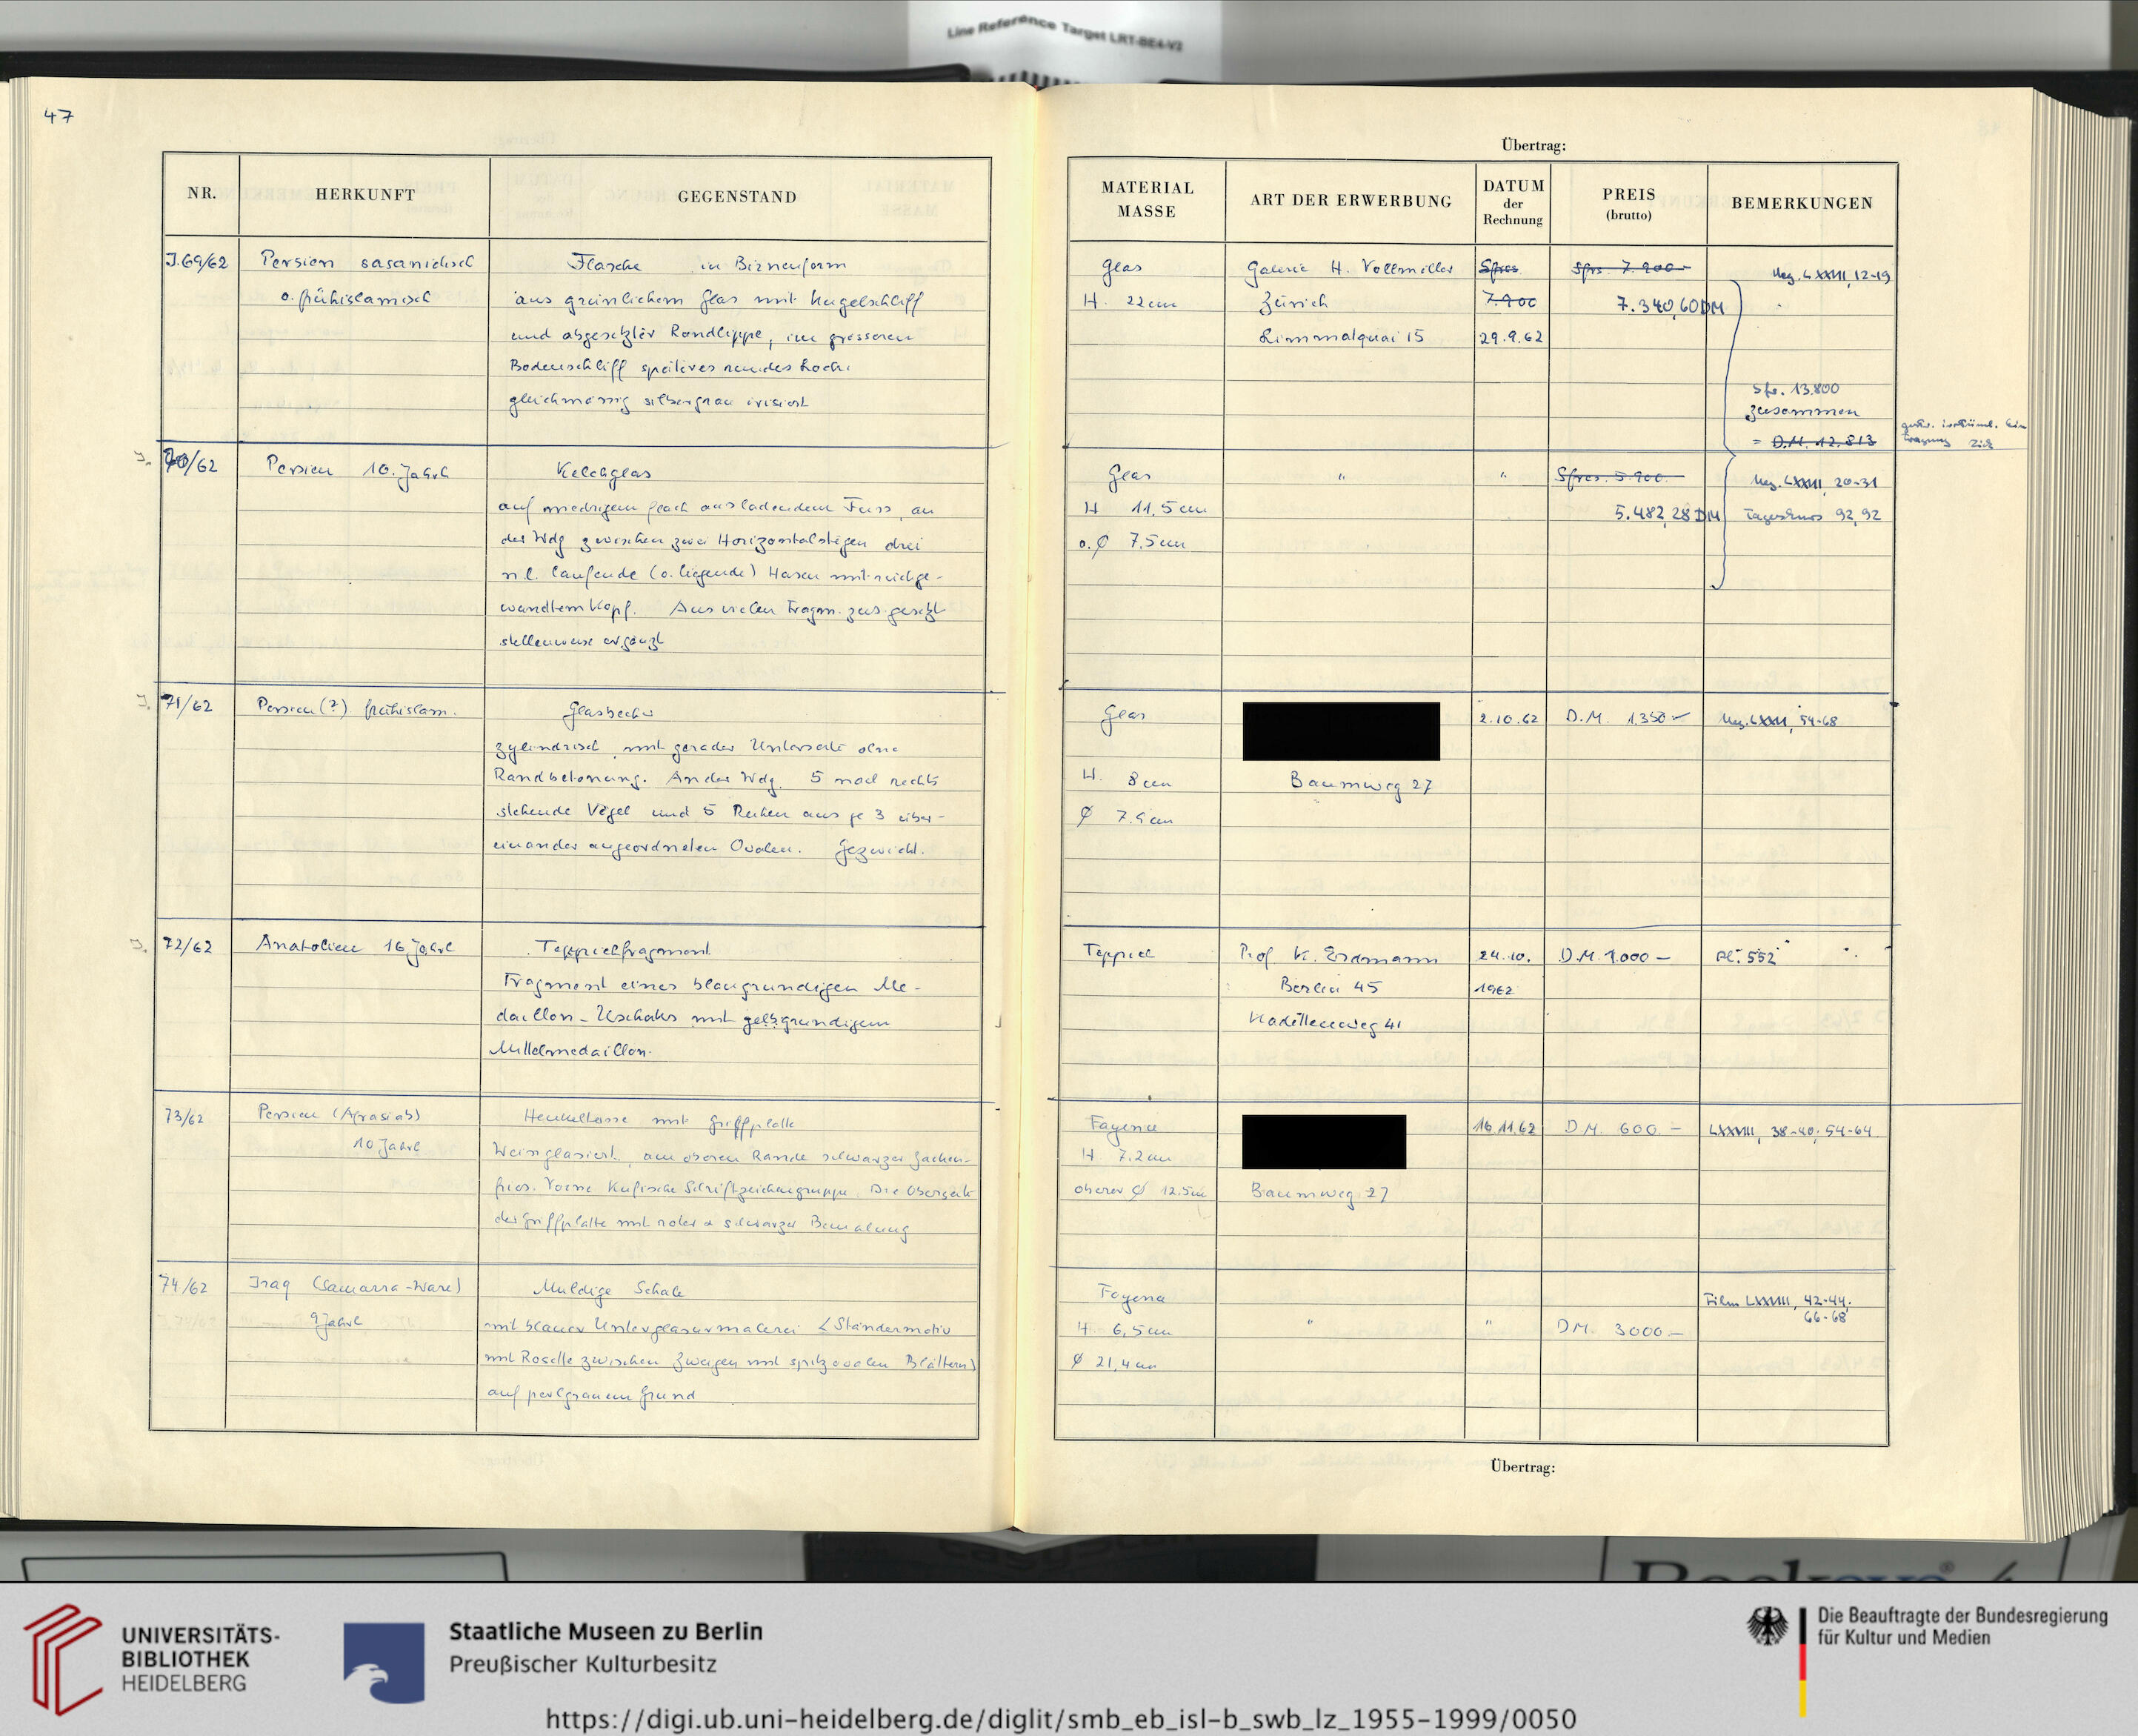 Line Reference Target LRT-BE4-V2
47
NR.
HERKUNFT
GEGENSTAND
Übertrag:
MATERIAL
MASSE
ART DER ERWERBUNG
DATUM
der
Rechnung
PREIS
(brutto)
BEMERKUNGEN
J.69/62
Persien sasanidisch
o. frühislamisch
Flasche in Birnenform
aus grünlichem Glas mit Kugelschliff
und abgesetzter Randlippe, im grösseren
Bodenschliff späteres rundes Loch.
gleichmässig silbergrau irisiert
Glas
H. 22 cm
Galerie H. Vollmöller
Zürich
Limmatquai 15
Sfrcs
7.900
29.9.62
Sfrs. 7.900.-
7.340,60 DM
Neg. LXXIII, 12-19
Sfr. 13.800
zusammen
= D.M. 12.813
J. 70/62
Persien 10. Jahrh
Kelchglas
auf niedrigem flach ausladendem Fuss, an
der Wdg zwischen zwei Horizontalstegen drei
n.l. laufende (o. liegende) Hasen mit rückge-
wandtem Kopf. Aus vielen Fragm. zus. gesetzt
stellenweise ergänzt
Glas
H 11,5 cm
o. Ø 7,5 cm
"
"
Sfrcs. 5.900.
5.482,28 DM
Neg. LXXIII, 20-31
Tageskurs 92,92
J. 71/62
Persien (?) frühislam.
Glasbecher
zylindrisch mit gerader Unterseite ohne
Randbetonung. An der Wdg. 5 nach rechts
stehende Vögel und 5 Reihen aus je 3 über-
einander angeordneten Ovalen. Gezwickt.
Glas
H. 8 cm
Ø 7.9 cm
Baumweg 27
2.10.62
D.M. 1.350.-
Neg. LXXII, 54-68
J. 72/62
Anatolien 16 Jahrh
Teppichfragment
Fragment eines blaugrundigen Me-
daillon-Uschaks mit gelbgrundigem
Mittelmedaillon.
Teppich
Prof. K. Erdmann
Berlin 45
Kadettenweg 41
24.10.
1962
D.M. 1.000 -
Pl. 552
73/62
Persien (Afrasiab)
10 Jahrh
Henkeltasse mit Griffplatte
Weissglasiert, am oberen Rande schwarzer Zacken-
fries. Vorne Kufische Schriftzeichengruppe. Die Oberseite
der Griffplatte mit roter & schwarzer Bemalung
Fayence
H 7.2 cm
oberer Ø 12.5 cm
Baumweg 27
16.11.62
D.M. 600.-
LXXVIII, 38-40; 54-64
74/62
Iraq (Samarra-Ware)
9 Jahrh
Muldige Schale
mit blauer Unterglasurmalerei (Ständermotiv
mit Rosette zwischen Zweigen mit spitzovalen Blättern)
auf perlgrauem Grund
Fayence
H 6,5 cm
Ø 21,4 cm
"
"
D.M. 3000.-
Film LXXVIII, 42-44.
66-68
Übertrag:
UNIVERSITÄTS-
BIBLIOTHEK
HEIDELBERG
Staatliche Museen zu Berlin
Preußischer Kulturbesitz
Die Beauftragte der Bundesregierung
für Kultur und Medien
https://digi.ub.uni-heidelberg.de/diglit/smb_eb_isl-b_swb_lz_1955-1999/0050